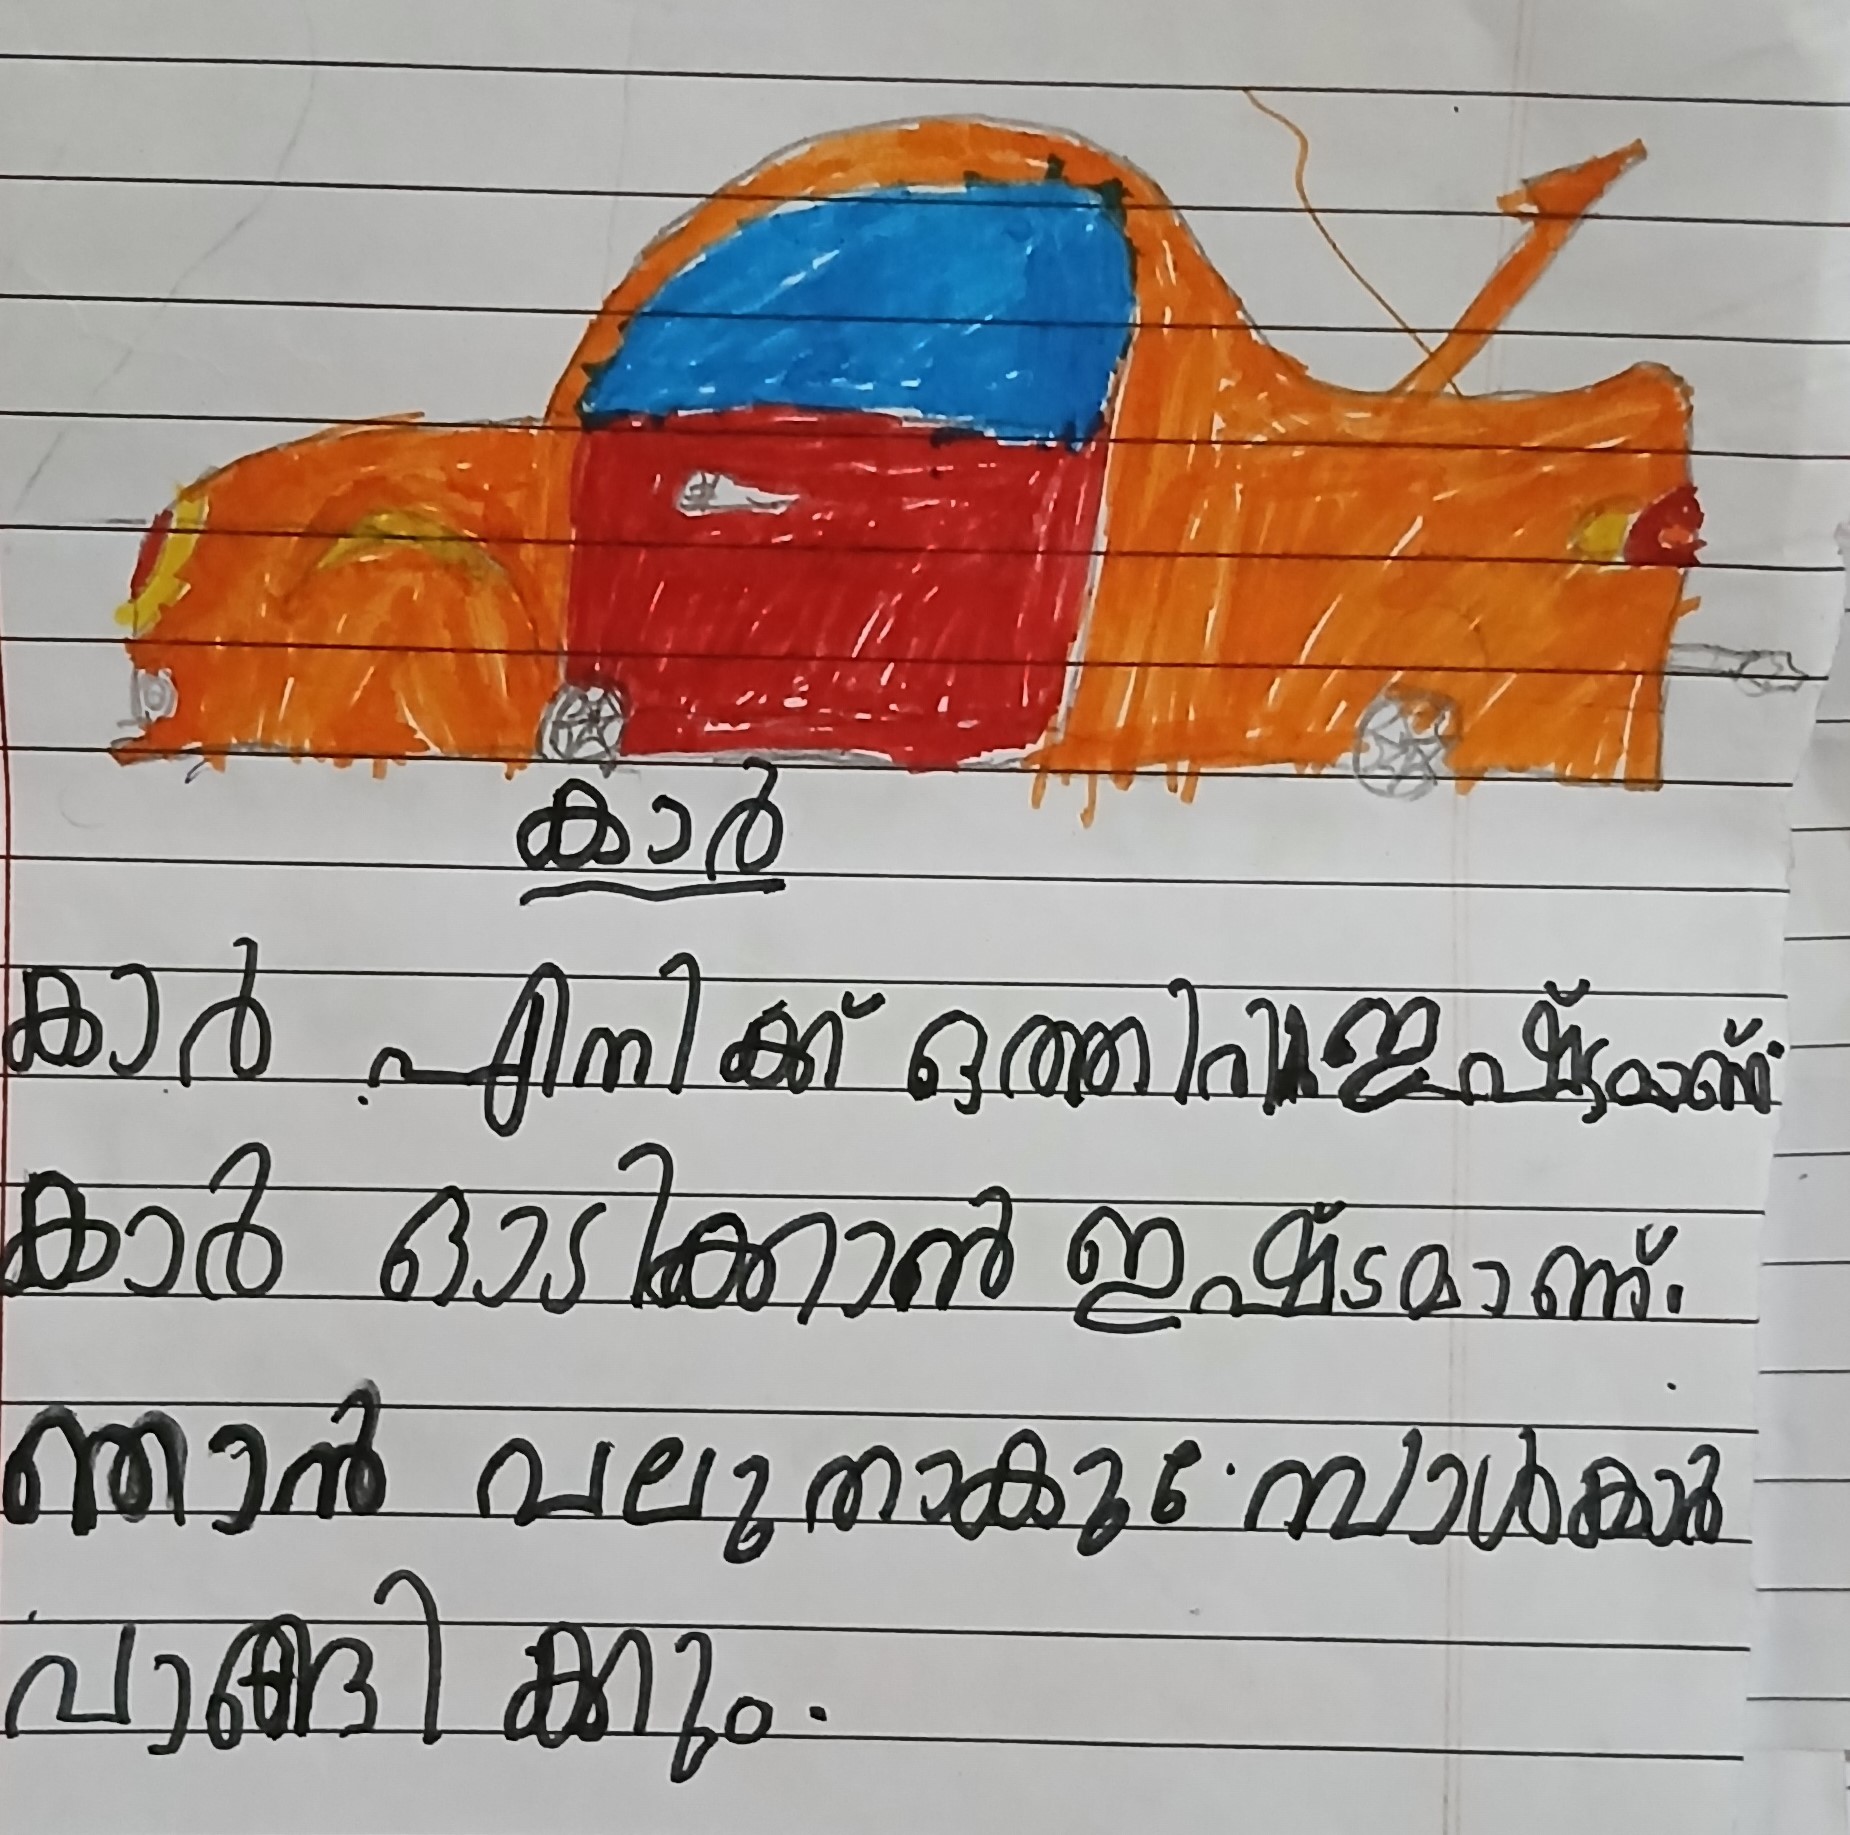 കാർ
കാർ എനിക്ക് ഒത്തിരി ഇഷ്ടമാണ്
കാർ ഓടിക്കാൻ ഇഷ്ടമാണ്.
ഞാൻ വലുതാകുമ്പോൾ കാർ
വാങ്ങിക്കും.